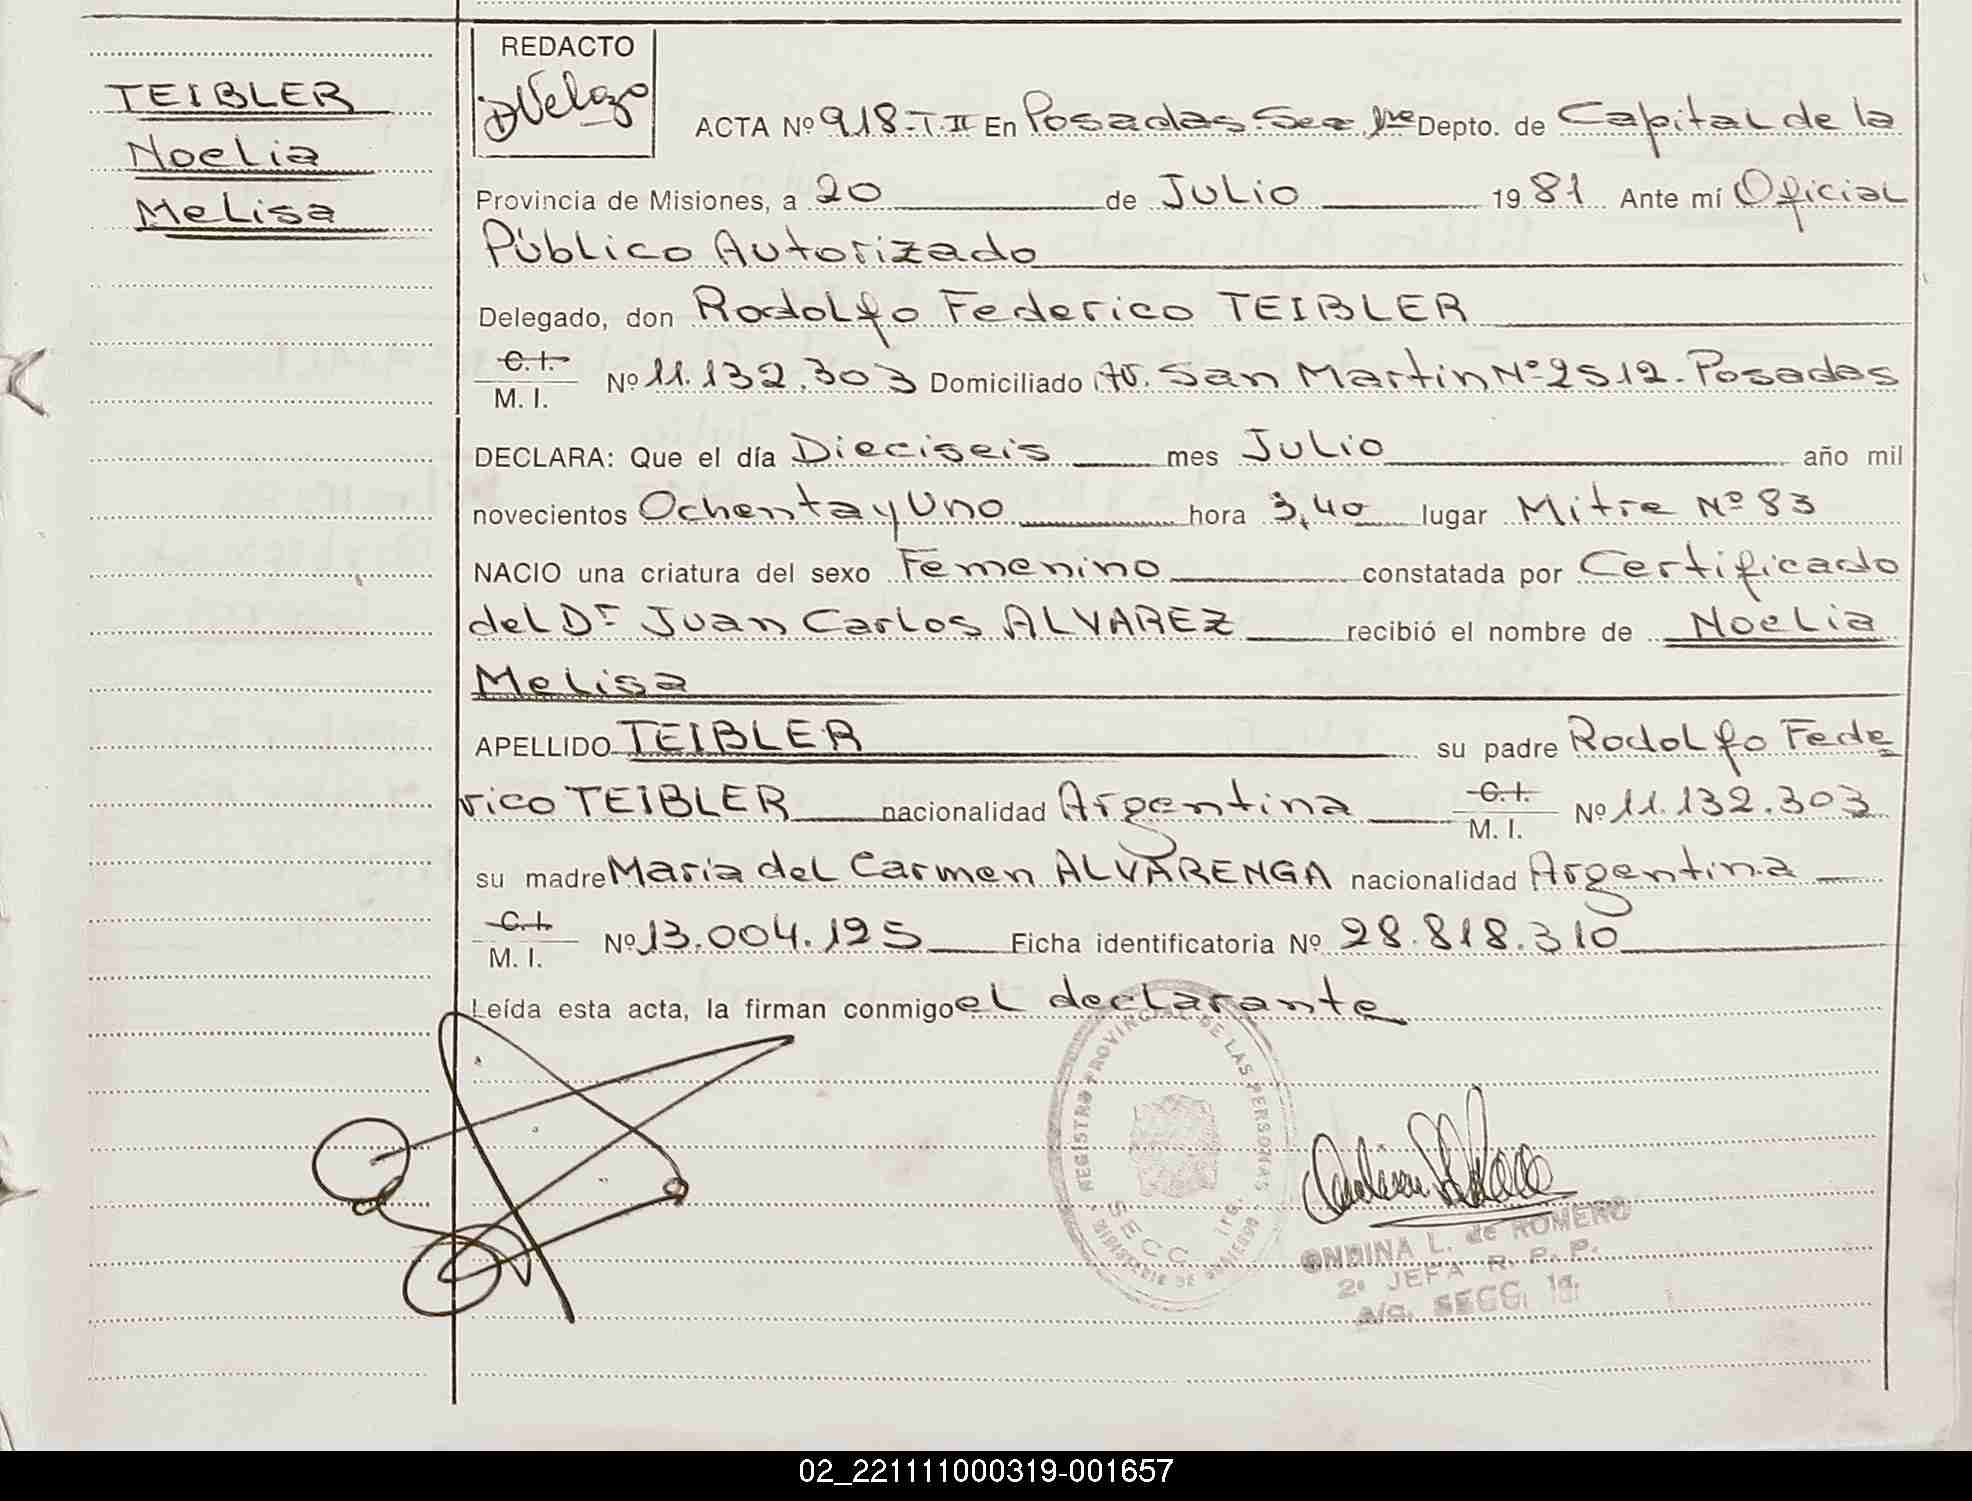 TEIBLER
Noelia
Melisa
REDACTO
DVelazo
ACTA Nº 918-T.II En Posadas. Secc. 1ra Depto. de Capital de la
Provincia de Misiones, a 20 de Julio 1981 Ante mí Oficial
Público Autorizado
Delegado, don Rodolfo Federico TEIBLER
C.I.
M. I. Nº 11.132.303 Domiciliado Av. San Martin Nº 2512. Posadas
DECLARA: Que el día Dieciseis mes Julio año mil
novecientos Ochenta y Uno hora 3,40 lugar Mitre Nº 83
NACIO una criatura del sexo Femenino constatada por Certificado
del Dr Juan Carlos ALVAREZ recibió el nombre de Noelia
Melisa
APELLIDO TEIBLER su padre Rodolfo Fede
rico TEIBLER nacionalidad Argentina C.I. M. I. Nº 11.132.303
su madre María del Carmen ALVARENGA nacionalidad Argentina
C.I.
M. I. Nº 13.004.195 Ficha identificatoria Nº 28.818.310
Leída esta acta, la firman conmigo el declarante
REGISTRO PROVINCIAL DE LAS PERSONAS
SECC. 1ra.
MINISTERIO DE GOBIERNO
ONDINA L. de ROMERO
2ª JEFA R. P. P.
a/c. SECC. 1ª.
02_221111000319-001657